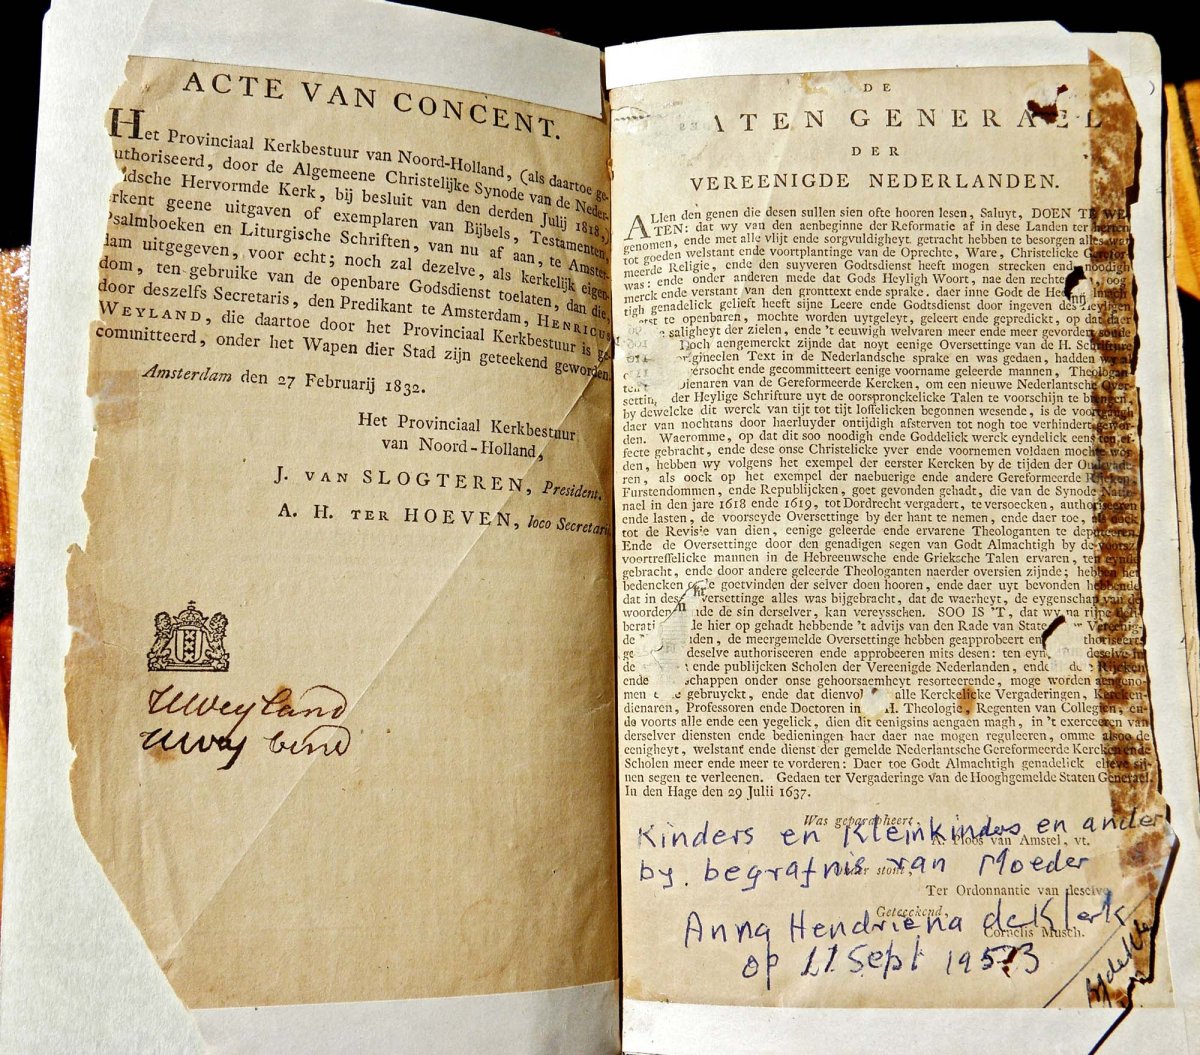 ACTE VAN CONCENT.
Het Provinciaal Kerkbestuur van Noord-Holland, (als daartoe ge-
uthoriseerd, door de Algemeene Christelijke Synode van de Neder-
ldsche Hervormde Kerk, bij besluit van den derden Julij 1818,)
rkent geene uitgaven of exemplaren van Bijbels, Testamenten,
Psalmboeken en Liturgische Schriften, van nu af aan, te Amster-
dam uitgegeven, voor echt; noch zal dezelve, als kerkelijk eigen-
dom, ten gebruike van de openbare Godsdienst toelaten, dan die,
door deszelfs Secretaris, den Predikant te Amsterdam, HENRICUS
WEYLAND, die daartoe door het Provinciaal Kerkbestuur is ge-
committeerd, onder het Wapen dier Stad zijn geteekend geworden.
Amsterdam den 27 Februarij 1832.
Het Provinciaal Kerkbestuur
van Noord-Holland,
J. VAN SLOGTEREN, President.
A. H. TER HOEVEN, loco Secretaris
HWeyland
DE
ATEN GENERAEL
DER
VEREENIGDE NEDERLANDEN.
ALlen den genen die desen sullen sien ofte hooren lesen, Saluyt, DOEN TE WE-
TEN: dat wy van den aenbeginne der Reformatie af in dese Landen ter herten
genomen, ende met alle vlijt ende sorgvuldigheyt getracht hebben te besorgen alles wat
tot goeden welstant ende voortplantinge van de Oprechte, Ware, Christelicke Gerefor-
meerde Religie, ende den suyveren Godtsdienst heeft mogen strecken ende noodigh
was: ende onder anderen mede dat Gods Heyligh Woort, nae den rechten oog
merck ende verstant van den gronttext ende sprake. daer inne Godt de Hee
tigh genadelick gelieft heeft sijne Leere ende Godtsdienst door ingeven des Heyligen
te openbaren, mochte worden uytgeleyt, geleert ende gepredickt, op dat daer
saligheyt der zielen, ende 't eeuwigh welvaren meer ende meer gevordert soude
Doch aengemerckt zijnde dat noyt eenige Oversettinge van de H. Schrifture
origineelen Text in de Nederlandsche sprake en was gedaen, hadden wy al
ersocht ende gecommitteert eenige voorname geleerde mannen, Theologan-
Dienaren van de Gereformeerde Kercken, om een nieuwe Nederlantsche Over-
settin der Heylige Schrifture uyt de oorspronckelicke Talen te voorschijn te brengen,
by dewelcke dit werck van tijt tot tijt loffelicken begonnen wesende, is de voortgangh
daer van nochtans door haerluyder ontijdigh afsterven tot nogh toe verhindert gewor-
den. Waeromme, op dat dit soo noodigh ende Goddelick werck eyndelick eens ten ef-
fecte gebracht, ende dese onse Christelicke yver ende voornemen voldaen mochte wor-
den, hebben wy volgens het exempel der eerster Kercken by de tijden der Oudevade-
ren, als oock op het exempel der naebuerige ende andere Gereformeerde Rijcken,
Furstendommen, ende Republijcken, goet gevonden gehadt, die van de Synode Natio-
nael in den jare 1618 ende 1619, tot Dordrecht vergadert, te versoecken, authoriseeren
ende lasten, de voorseyde Oversettinge by der hant te nemen, ende daer toe, als oock
tot de Revisie van dien, eenige geleerde ende ervarene Theologanten te deputeeren.
Ende de Oversettinge door den genadigen segen van Godt Almachtigh by de voorsz.
voortreffelicke mannen in de Hebreeuwsche ende Grieksche Talen ervaren, ten eynde
gebracht, ende door andere geleerde Theologanten naerder oversien zijnde; hebben het
bedencken goetvinden der selver doen hooren, ende daer uyt bevonden hebbende
dat in des versettinge alles was bijgebracht, dat de waerheyt, de eygenschap van de
woorden nde de sin derselver, kan vereysschen. SOO IS 'T, dat wy na rijpe deli-
berati e hier op gehadt hebbende 't advijs van den Rade van State Vereenig-
de nden, de meergemelde Oversettinge hebben geapprobeert en thoriseert
ge deselve authoriseeren ende approbeeren mits desen: ten eyn deselve in
de ende publijcken Scholen der Vereenigde Nederlanden, ende de Rijcken
ende schappen onder onse gehoorsaemheyt resorteerende, moge worden aengeno-
men gebruyckt, ende dat dienvol alle Kerckelicke Vergaderingen, Kercken-
dienaren, Professoren ende Doctoren in H. Theologie, Regenten van Collegien, en-
de voorts alle ende een yegelick, dien dit eenigsins aengaen magh, in 't exerceeren van
derselver diensten ende bedieningen haer daer nae mogen reguleeren, omme alsoo de
eenigheyt, welstant ende dienst der gemelde Nederlantsche Gereformeerde Kercken ende
Scholen meer ende meer te vorderen: Daer toe Godt Almachtigh genadelick elieve sij-
nen segen te verleenen. Gedaen ter Vergaderinge van de Hooghgemelde Staten Generael.
In den Hage den 29 Julii 1637.
Was geparapheert,
Kinders en Kleinkinders en ander
A. Ploos van Amstel, vt.
by begrafnis van Moeder
onder stont,
Ter Ordonnantie van deselve
Geteeckend,
Anna Hendriena de Klerk
Cornelis Musch.
op 11 Sept 1953